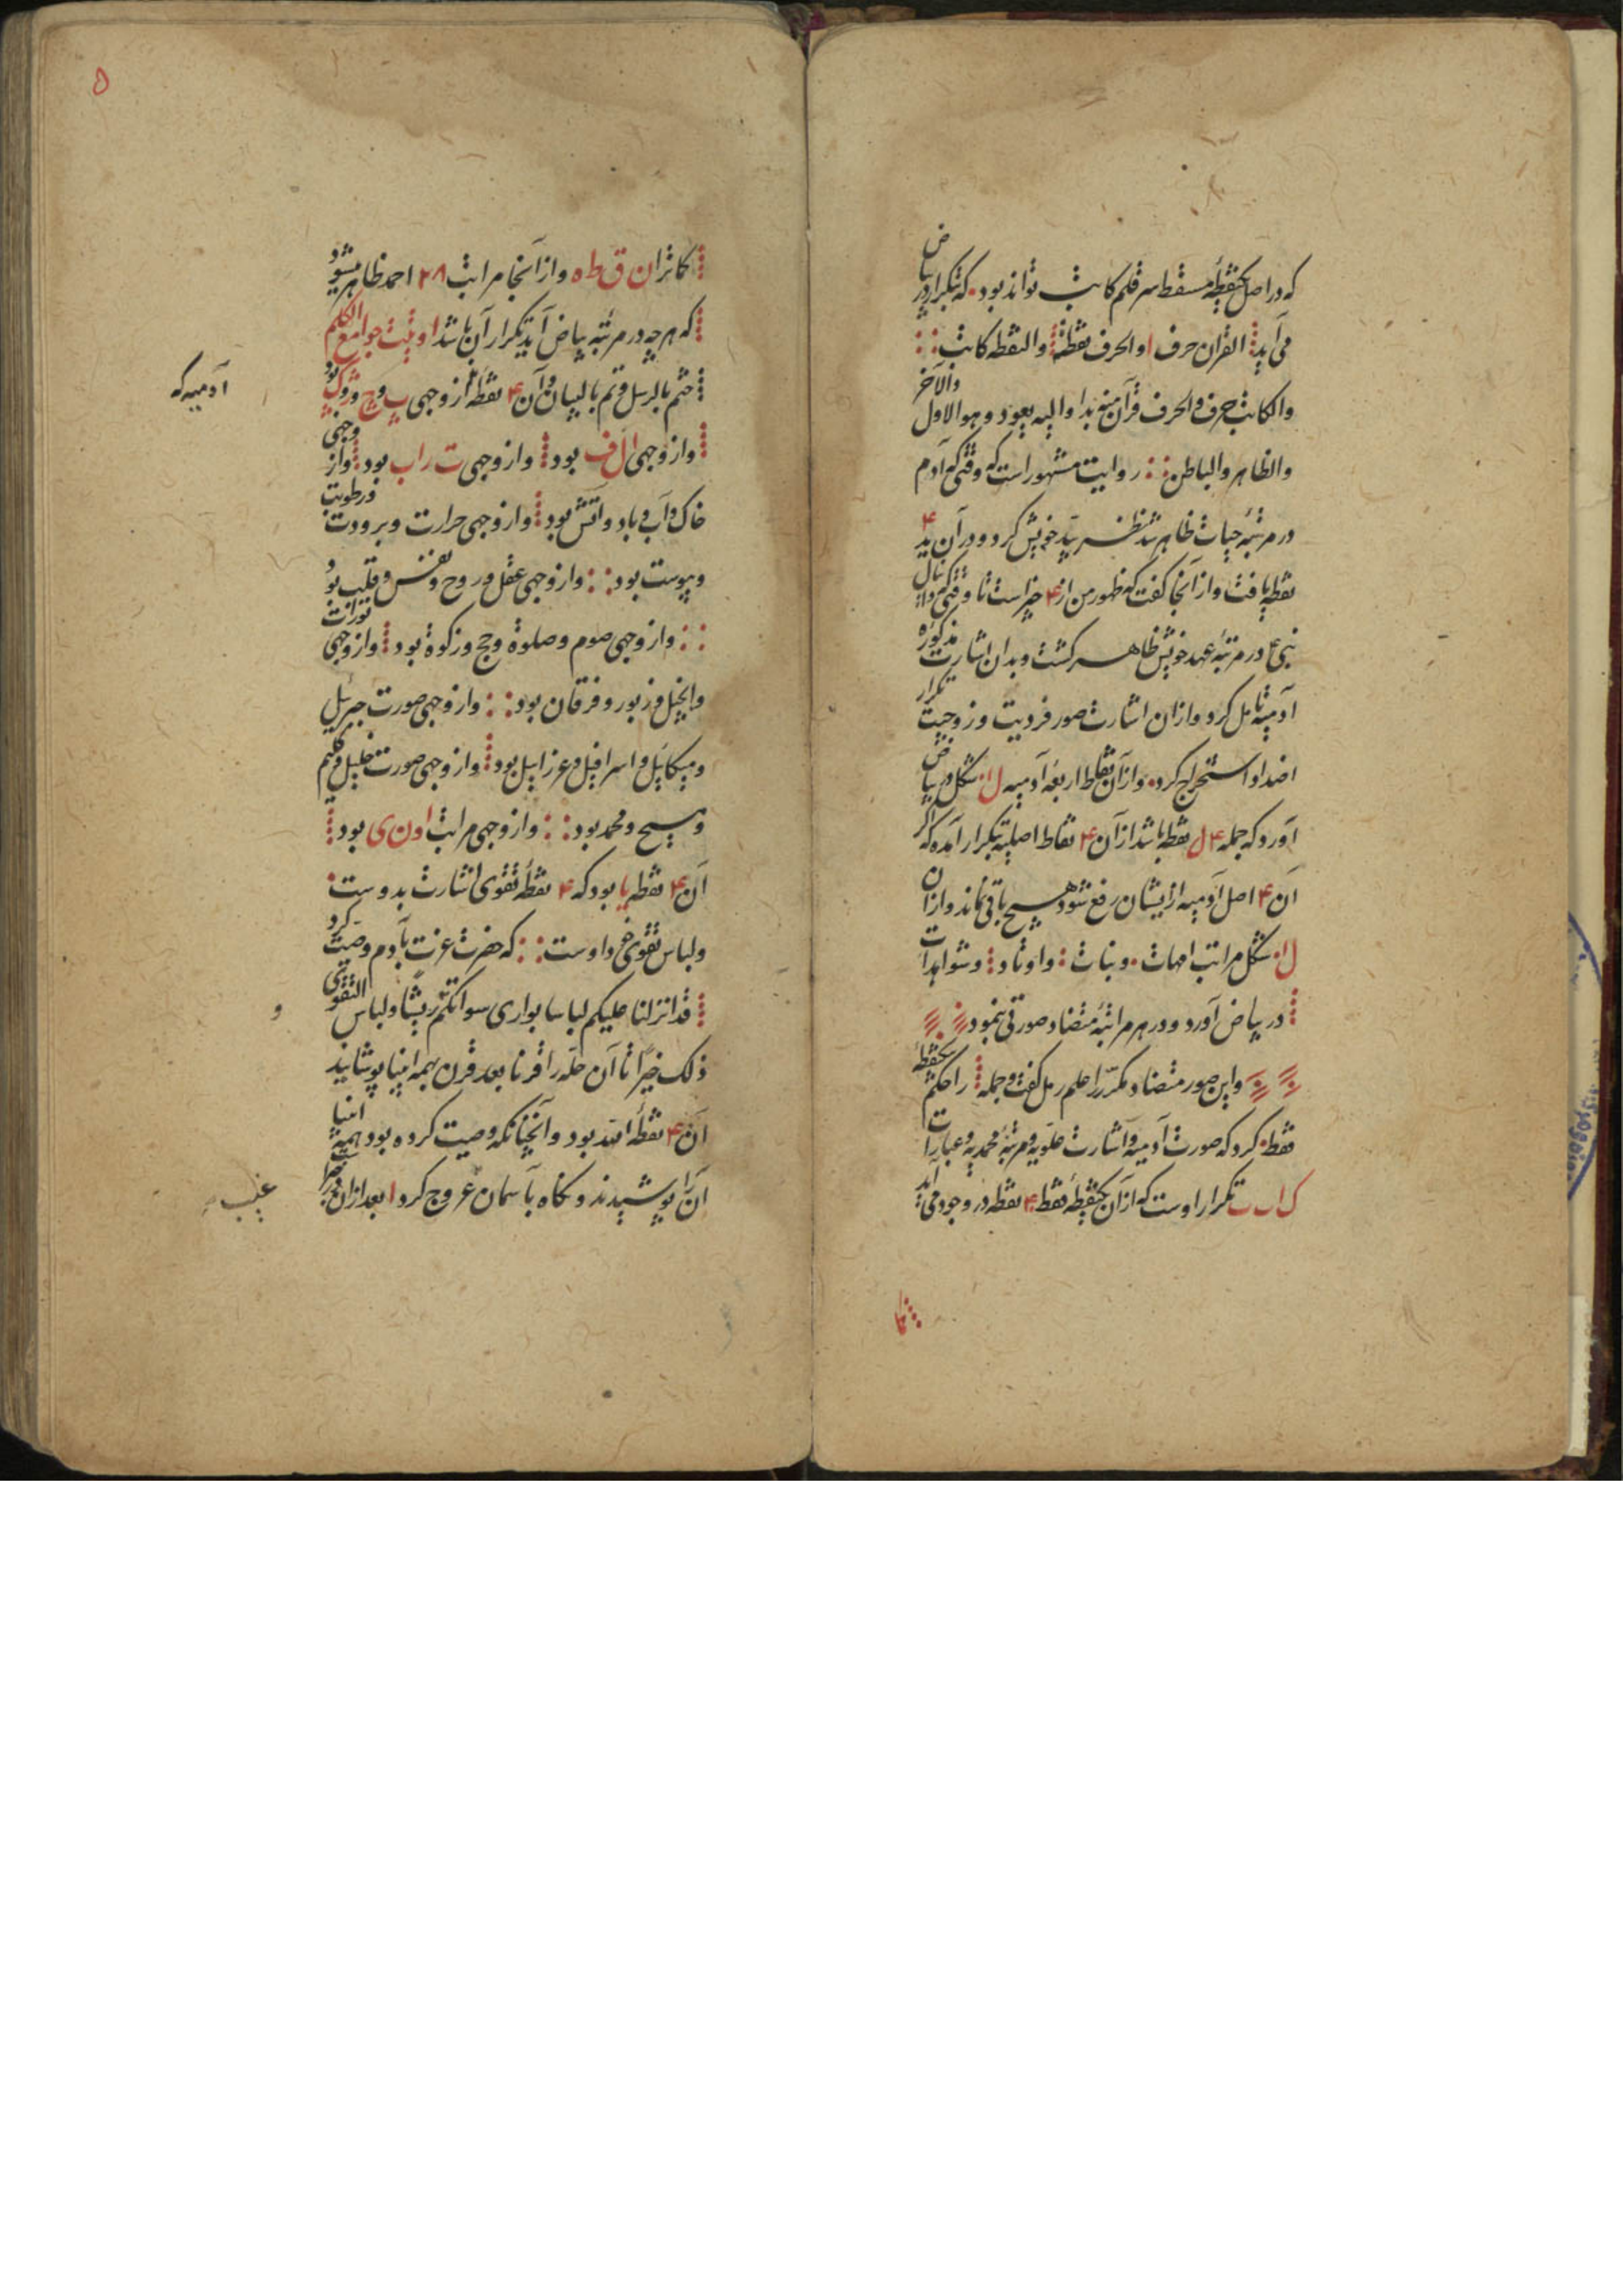 که در اصل یکنقطهٔ مسقط سر قلم کاتب تواند بود که بتکرار در بیاض
می آید القران حرف ا والحرف نقطة والنقطه کاتب
والکاتب حرف والحرف قرآن منه بدا والیه یعود وهو الاول والآخر
والظاهر والباطن روایت مشهور است که وقتی که آدم
در مرتبهٔ حیات ظاهر شد نظر بید خویش کرد و در آن ید ۴
نقطه یافت و از آنجا گفت که ظهور من از ۴ چیز است تا وقتی که دانیال
نبی ع در مرتبه عهد خویش ظاهر گشت و بدان اشارت مذکوره
آدمیه تامل کرد و ازان اشارت صور فردیت و زوجیت تکرار
اضداد استخراج کرد و از آن نقاط اربعه آدمیه ل ا شکل در بیاض
آورد که جمله ۴ ل نقطه باشد از آن ۴ نقاط اصلیه بتکرار آمده که اگر
آن ۴ اصل آدمیه از ایشان رفع شود هیچ باقی نماند و ازان
ل ا شکل مراتب امهات و بنات و اوتاد و شواهدات
در بیاض آورد و در هر مراتبهٔ متضاد صورتی بنمود
و این صور متضاد مکرر را علم رمل گفت و جمله را حکم یکنقطه
فقط کرد که صورت آدمیه و اشارت علویه و مرتبهٔ محمدیه و عبارات
ک ا ت ب تکرار اوست که از آن یکنقطهٔ فقط ۴ نقطه در وجود می آید
کما
۵
کما تران ق ط ه و از آنجا مراتب ۲۸ احمد ظاهر میشود
که هر چه در مرتبه بیاض آید تکرار آن باشد اوتیت جوامع الکلم
ختم بالرسل وتم بالبیان و آن ۴ نقطه از وجهی ب و ج و ز و ک بود
و از وجهی ا ل ف بود و از وجهی ت ر ا ب بود و از وجهی
خاک و آب و باد و آتش بود و از وجهی حرارت و برودت و رطوبت
و یبوست بود و از وجهی عقل و روح و نفس و قلب بود
و از وجهی صوم و صلوة و حج و زکوة بود و از وجهی تورات
و انجیل و زبور و فرقان بود و از وجهی صورت جبرئیل
و میکائیل و اسرافیل و عزرائیل بود و از وجهی صورت خلیل و کلیم
و مسیح و محمد بود و از وجهی مراتب ا و ن ی بود
آن ۴ نقطه یا بود که ۴ نقطهٔ تقوی اشارت بدوست
و لباس تقوی خود اوست که حضرت عزت بآدم وصیت کرد
قد انزلنا علیکم لباسا یواری سواتکم وریشا ولباس التقوی
ذلک خیر تا آن حله را قرنا بعد قرن همه انبیا پوشانید
آن ۴ نقطهٔ الله بود و آنچنانکه وصیت کرده بود همهٔ انبیا
آن را پوشیدند و نگاه بآسمان عروج کرد ا بعد ازان
آدمیه که
و
غیب